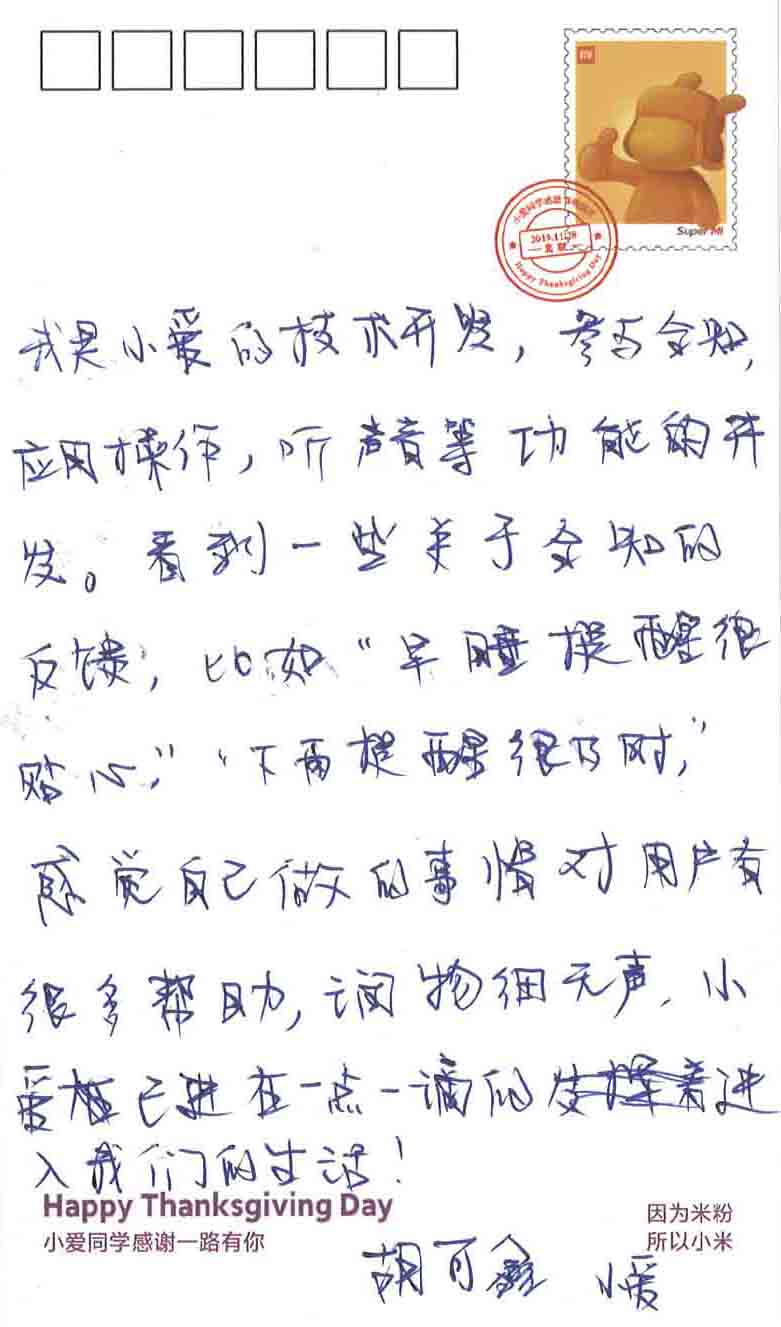 MI
Super MI
小爱同学感恩节
2019.11.28
Happy Thanksgiving Day
我是小爱的技术开发，参与全知，
应用操作，听声音等功能的开
发。看到一些关于全知的
反馈，比如“早睡提醒很
贴心，”“下雨提醒很及时，”
感觉自己做的事情对用户有
很多帮助，润物细无声，小
爱已在一点一滴的进
入我们的生活！
Happy Thanksgiving Day
小爱同学感谢一路有你
因为米粉
所以小米
胡可鑫 小爱